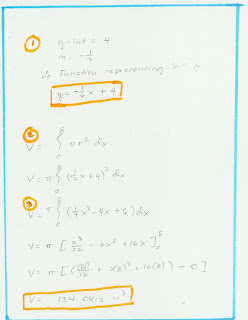 1
y-int = 4
m = -1/2
∴ Function representing "r" is
y = -1/2 x + 4
2
V = ∫₀⁸ πr² dx
V = π ∫₀⁸ (-1/2 x + 4)² dx
3
V = π ∫₀⁸ (1/4 x² - 4x + 16) dx
V = π [x³/12 - 2x² + 16x]₀⁸
V = 134.0413 u³